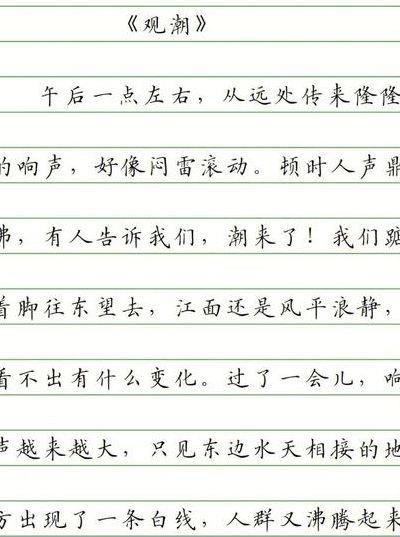 《观潮》
午后一点左右，从远处传来隆隆
的响声，好像闷雷滚动。顿时人声鼎
沸，有人告诉我们，潮来了！我们踮
着脚往东望去，江面还是风平浪静，
看不出有什么变化。过了一会儿，响
声越来越大，只见东边水天相接的地
方出现了一条白线，人群又沸腾起来